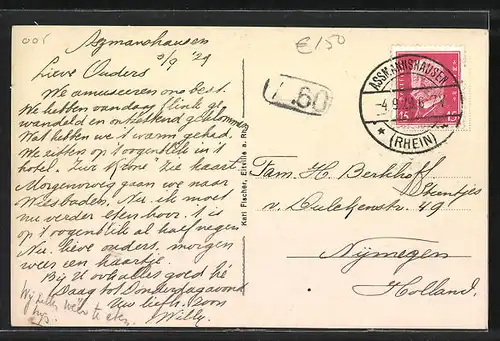 Assmanshausen
3/9 '29
Lieve Ouders
We amuseeren ons best.
We hebben vandaag flink ge
wandeld en ontzettend geklommen
Wat hebben we 't warm gehad.
We zitten op 't oogenblik in 't
hotel. "Zur Krone" zie kaart
Morgenvroeg gaan we naar
Wiesbaden. Nu ik moet
nu verder eten hoor. 't is
op 't oogenblik al half negen
Nu lieve ouders, morgen
weer een kaartje.
Bij U ook alles goed hé
Daag tot Donderdagavond
Uw liefh. Zoon
Willy.
Wij zullen
€150
L.60
ASSMANNSHAUSEN
4.9.29
(RHEIN)
15 15
Karl Fischer, Eltville a. Rh.
Fam. H. Berkhoff
v. Dulckenstr. 49
Nijmegen
Holland.